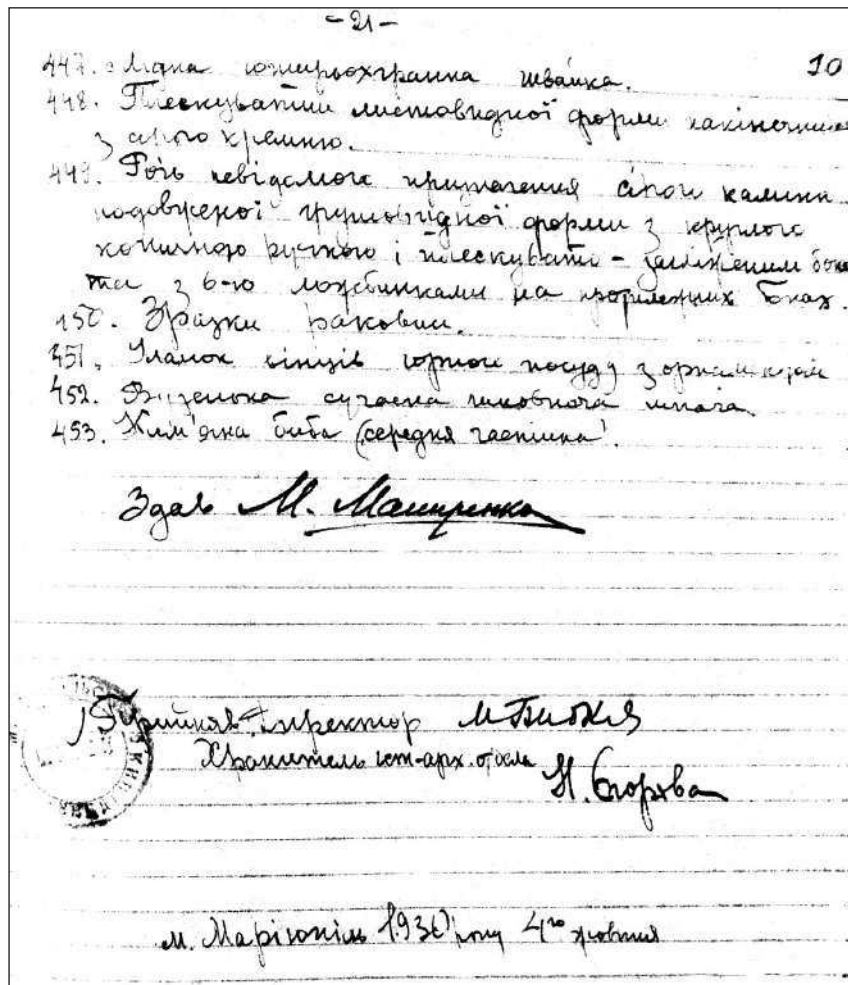 -21-
10
447. Мідна чотирьохгранна швайка.
448. Плескуватий листовидної форми накінечник
з сірого кремню.
449. Річь невідомого призначення сірого каміня
подовженої грушовидної форми з круглою
ручкою і плескувато-
та з 6-ю ложбинками на протилежних боках.
450. Зразки раковин.
451. Уламок вінців чорного посуду з орнаментом
452. Вузенька сучасна шпага.
453. Кам'яна баба (середня частина).
Здав М. Макаренко
Прийняв: Директор
Хранитель ист-арх. отдела
Н. Егорова
м. Маріюпіль 193 року 4го жовтня